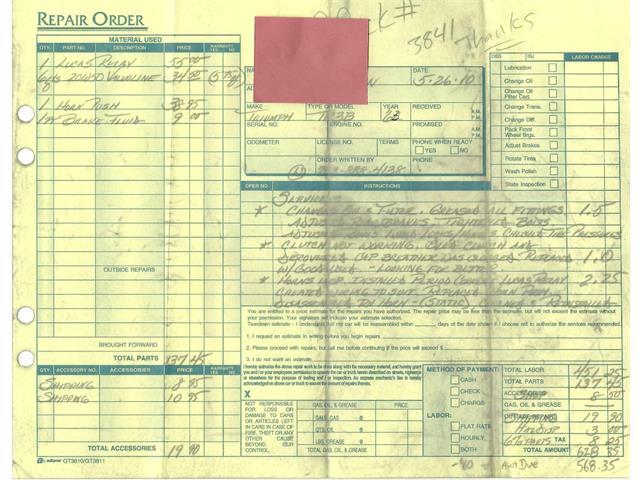 CK#
3841
Thanks
REPAIR ORDER
MATERIAL USED
QTY. PART NO. DESCRIPTION PRICE WARRANTY YES NO
1 LUCAS RELAY 55 00
6 qts 20W50 VALVOLINE 34 50
1 HORN PUSH 38 95
1 BRAKE FLUID 9 00
OUTSIDE REPAIRS
BROUGHT FORWARD
TOTAL PARTS 137 45
QTY. ACCESSORY NO. ACCESSORIES PRICE
SHIPPING 8 95
SHIPPING 10 95
TOTAL ACCESSORIES 19 90
adams GT3810/GT3811
DATE
5-26-10
MAKE TYPE OR MODEL YEAR RECEIVED A.M. P.M.
TRIUMPH TR3B 63
SERIAL NO. ENGINE NO. PROMISED A.M. P.M.
ODOMETER LICENSE NO. TERMS PHONE WHEN READY
YES NO
ORDER WRITTEN BY PHONE
OPER NO. INSTRUCTIONS
SERVICE
* CHANGED OIL & FILTER. GREASED ALL FITTINGS 1.5
* CLUTCH NOT WORKING. BLED CLUTCH AND
DISCOVERED CAP BREATHER WAS CLOGGED. REPLACED 1.0
W/ GOOD USED - LOOKING FOR BETTER
* HORNS INOP. INSTALLED PERIOD CORRECT LUCAS RELAY 2.25
DISASSEMBLED RH HORN - (STATIC) CLEANED & REINSTALLED
You are entitled to a price estimate for the repairs you have authorized. The repair price may be less than the estimate, but will not exceed the estimate
without your permission. Your signature will indicate your estimate selection.
Teardown estimate - I understand that my car will be reassembled within days of the date shown if I choose not to authorize the services recommended.
1. I request an estimate in writing before you begin repairs.
2. Please proceed with repairs, but call me before continuing if the price will exceed $
3. I do not want an estimate.
I hereby authorize the above repair work to be done along with the necessary material, and hereby grant
you and/or your employees permission to operate the car or truck herein described on streets, highways
or elsewhere for the purpose of testing and / or inspection. An express mechanic's lien is hereby
acknowledged on above car or truck to secure the amount of repairs thereto.
X
NOT RESPONSIBLE
FOR LOSS OR
DAMAGE TO CARS
OR ARTICLES LEFT
IN CARS IN CASE OF
FIRE, THEFT OR ANY
OTHER CAUSE
BEYOND OUR
CONTROL.
GAS, OIL & GREASE PRICE
GALS. GAS @
QTS. OIL @
LBS. GREASE @
TOTAL GAS, OIL & GREASE
LABOR CHARGE
Lubrication
Change Oil
Change Oil Filter Cart.
Change Trans.
Change Diff.
Pack Front Wheel Brgs.
Adjust Brakes
Rotate Tires
Wash Polish
State Inspection
METHOD OF PAYMENT:
CASH
CHECK
CHARGE
LABOR:
FLAT RATE
HOURLY
BOTH
TOTAL LABOR 451.25
TOTAL PARTS 137 45
GAS, OIL & GREASE 8 50
19 90
3 00
6% PARTS TAX 8 25
TOTAL AMOUNT 628.35
-60 = Amt Due 568.35